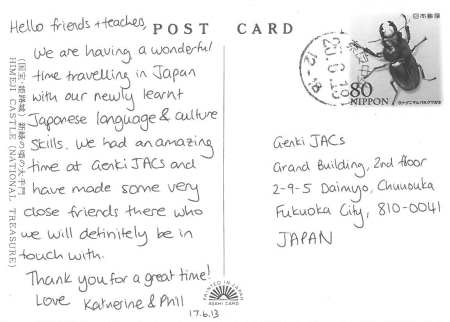 Hello friends + teachers,
We are having a wonderful
time travelling in Japan
with our newly learnt
Japanese language & culture
skills. We had an amazing
time at GenkiJACs and
have made some very
close friends there who
we will definitely be in
touch with.
Thank you for a great time!
Love Katherine & Phil
17.6.13
POST CARD
日本郵便
80
NIPPON
12-18
Genki JACs
Grand Building, 2nd floor
2-9-5 Daimyo, Chuuouka
Fukuoka City, 810-0041
JAPAN
HIMEJI CASTLE (NATIONAL TREASURE)
PRINTED IN JAPAN
ASAHI CARD